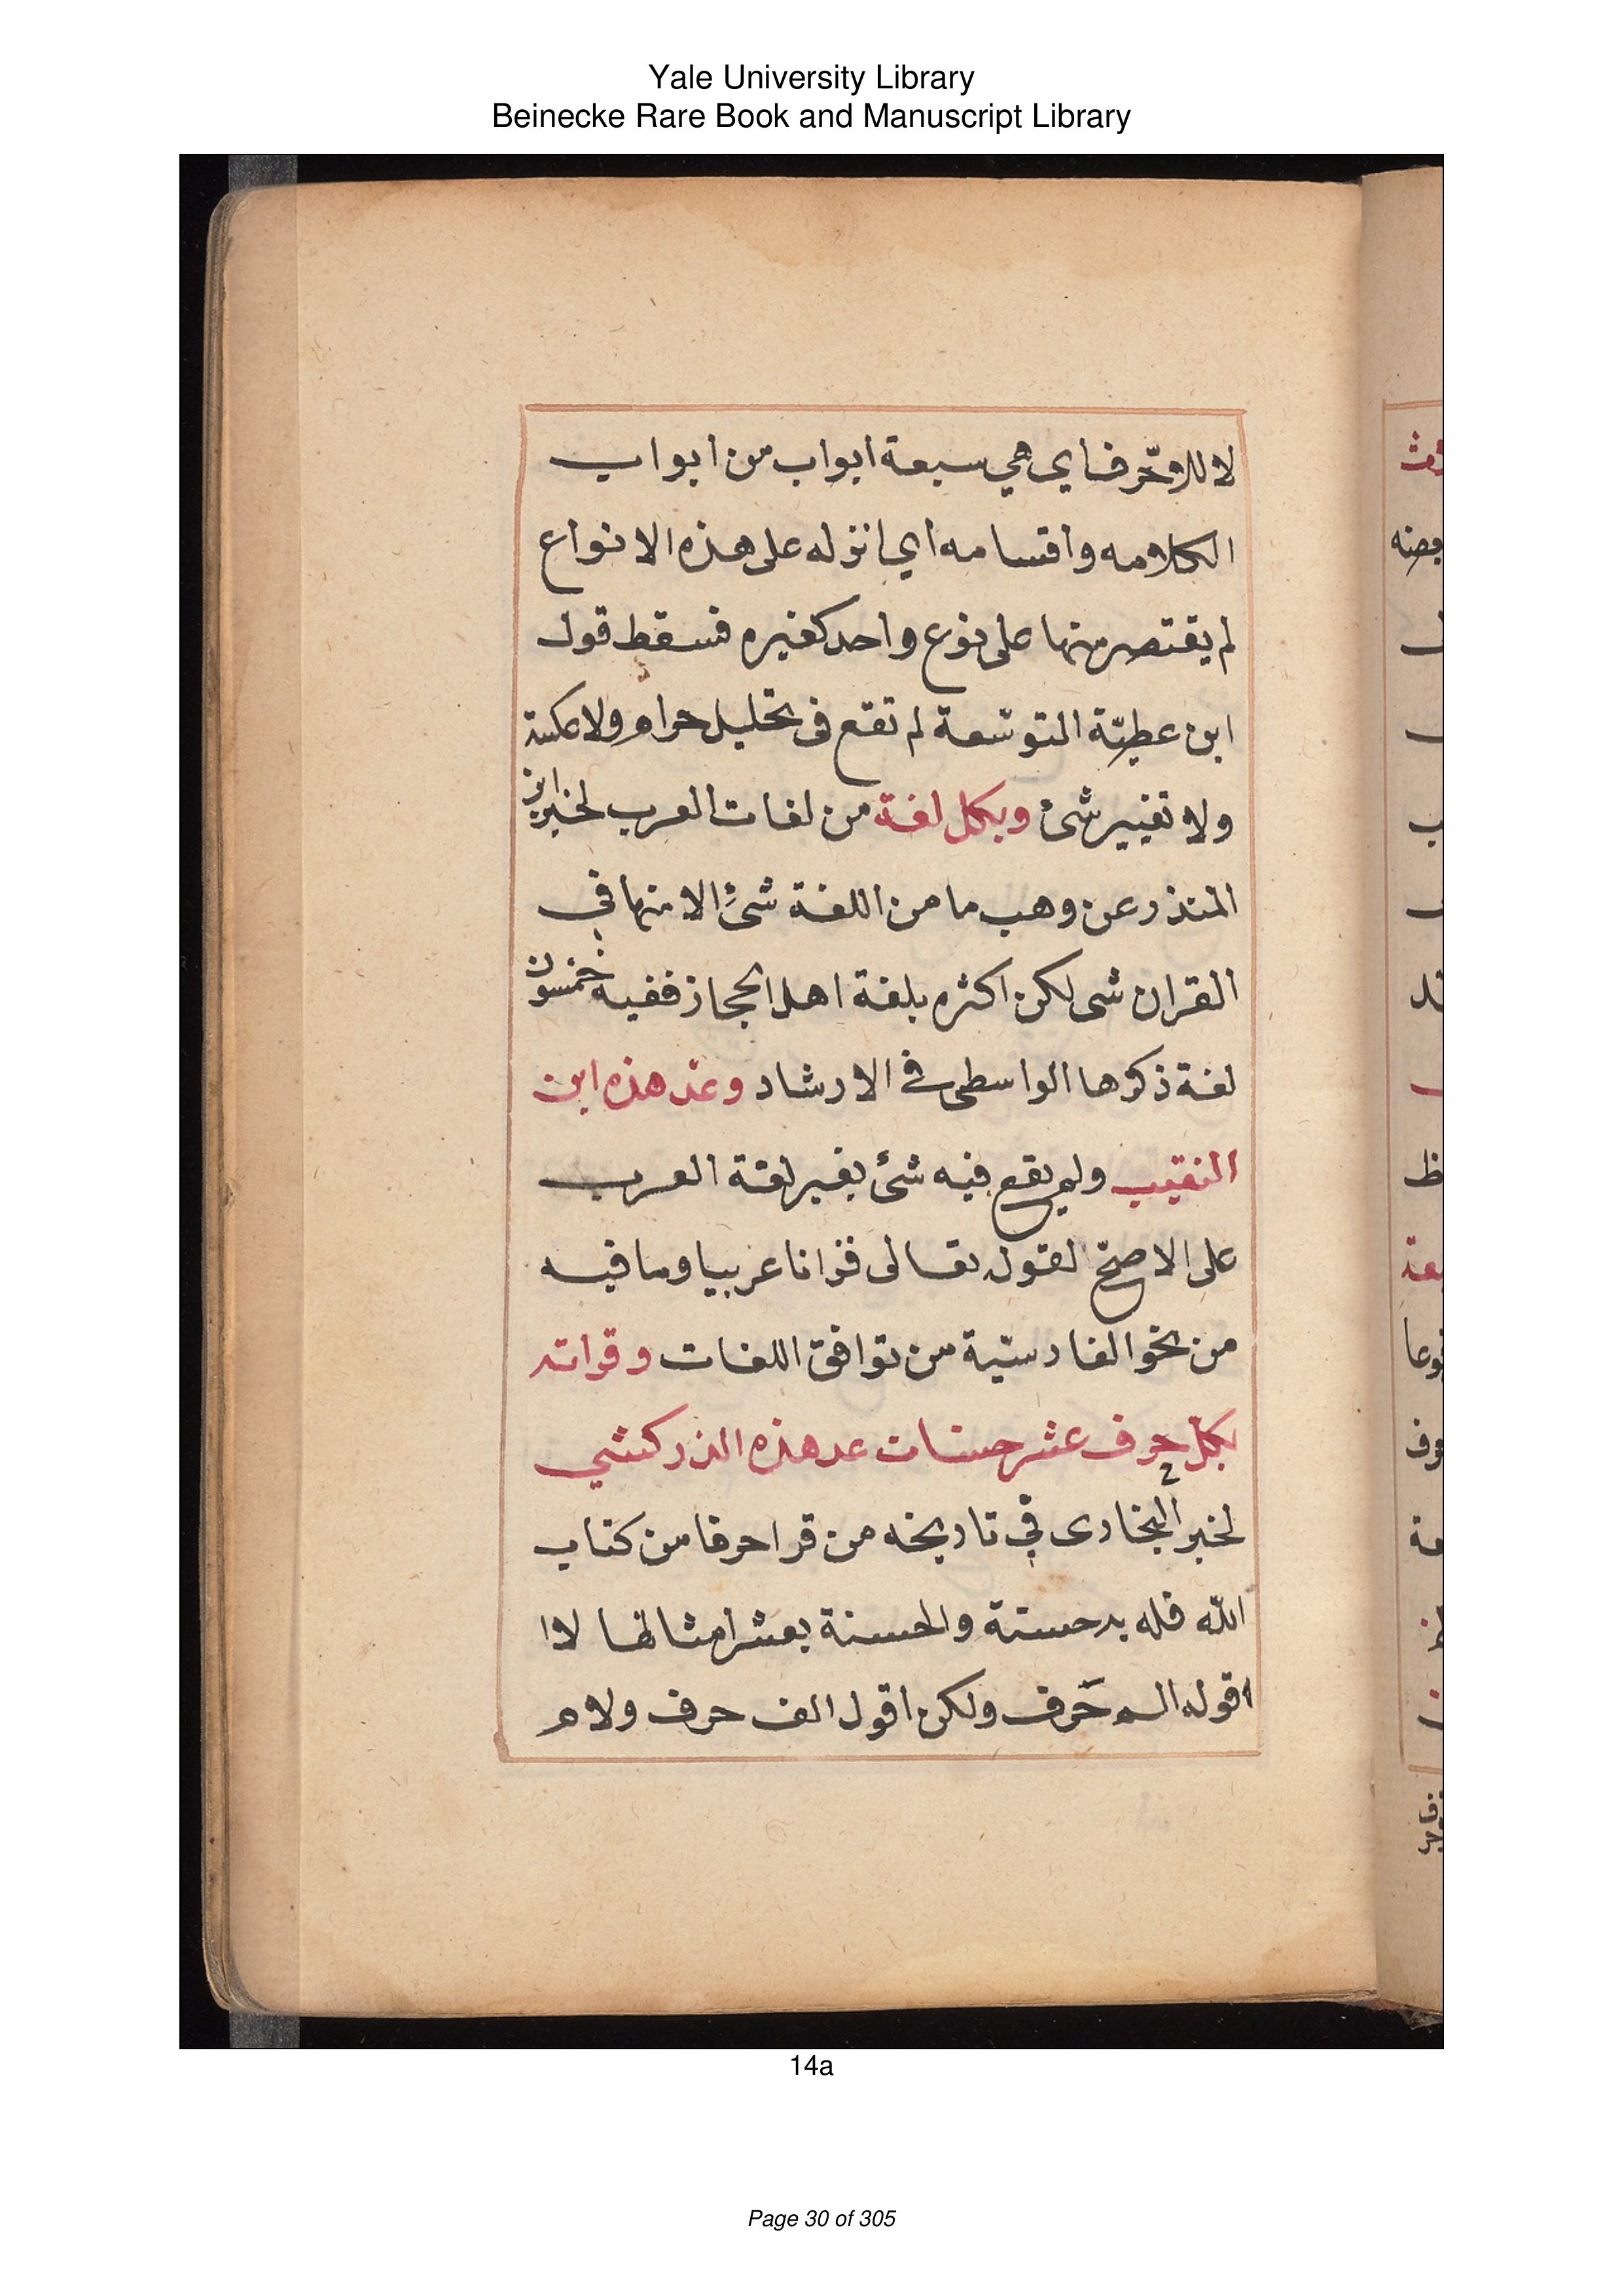 Yale University Library
Beinecke Rare Book and Manuscript Library
لا للاحرف اي هي سبعة ابواب من ابواب
الكلامه واقسامه اي انزله على هذه الانواع
لم يقتصر منها على نوع واحد كغيره فسقط قول
ابن عطيّة التوسّعة لم تقع في تحليل حرام ولا عكسه
ولا تغيير شئ وبكل لغة من لغات العرب لخبر ابن
المنذر عن وهب ما من اللغة شئ الا منها في
القران شى لكن اكثره بلغة اهل الحجاز ففيه خمسون
لغة ذكرها الواسطى في الارشاد وعدّ هذه ابن
النقيب ولم يقع فيه شئ بغير لغة العرب
على الاصحّ لقوله تعالى قرانا عربيا وما فيه
من نحو الفارسيّة من توافق اللغات وقراته
بكل حرف عشر حسنات عد هذه الزركشي
لخبر البخارى في تاريخه من قرا حرفا من كتاب
الله فله به حسنة والحسنة بعشر امثالها لا ا
اقول الم حَرف ولكن اقول الف حرف ولام
ظ
نوعا
14a
Page 30 of 305